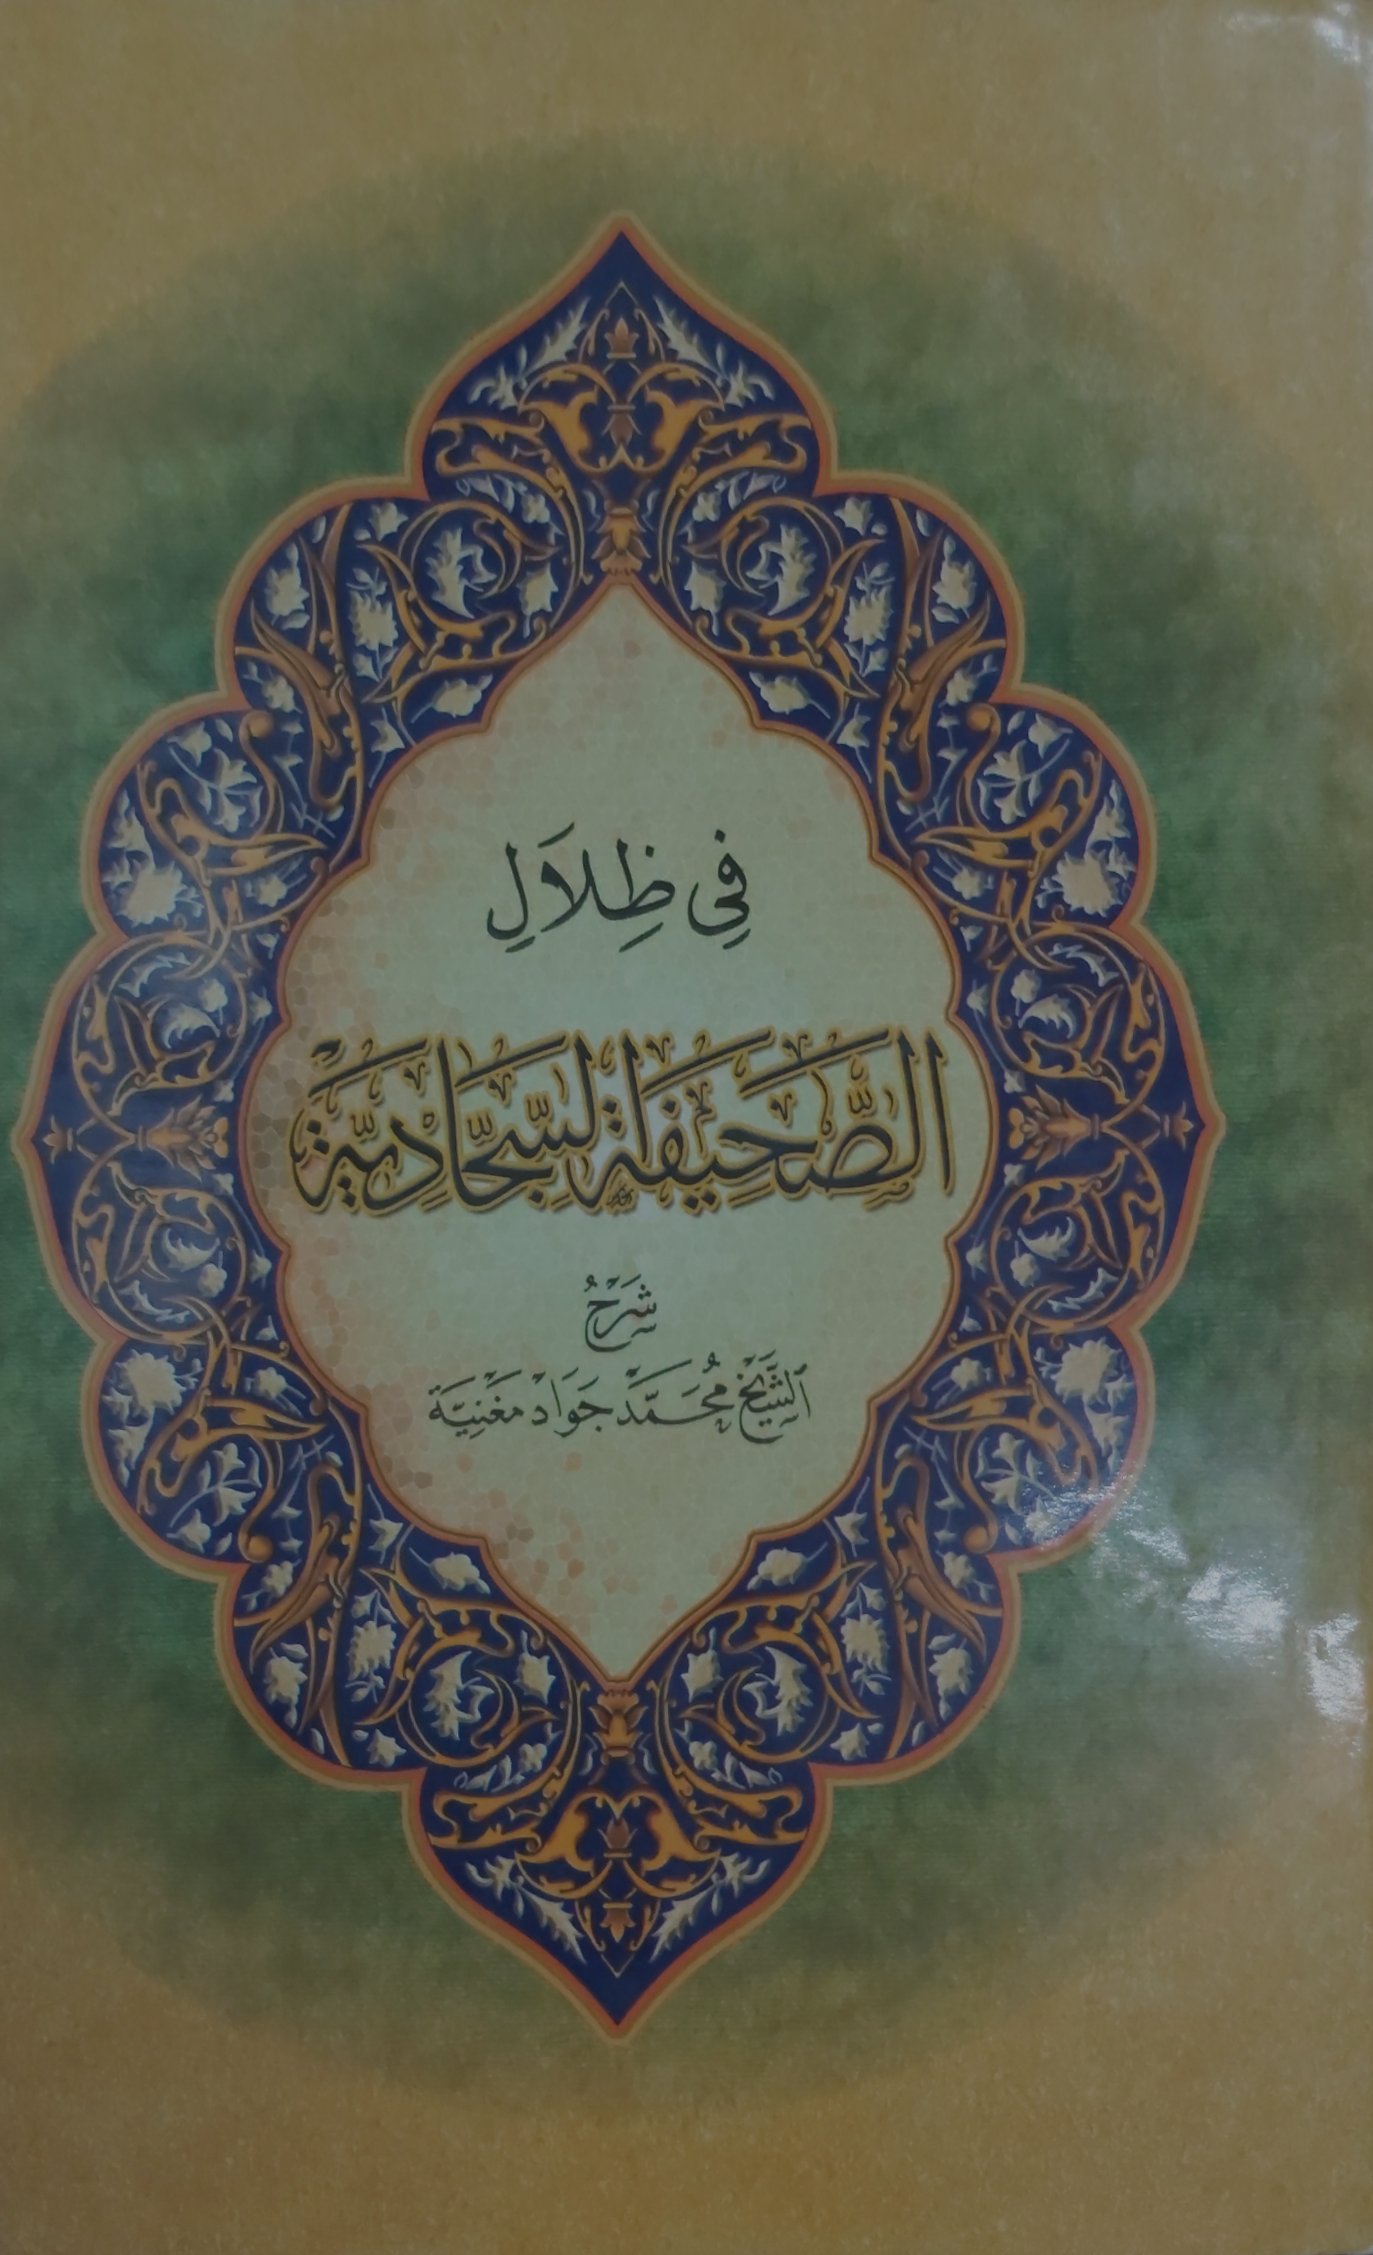 فِي ظِلَالِ
الصَّحِيفَةِ السَّجَّادِيَّةِ
شَرْحُ
الشَّيْخ مُحَمَّد جَوَاد مَغْنِيَّة